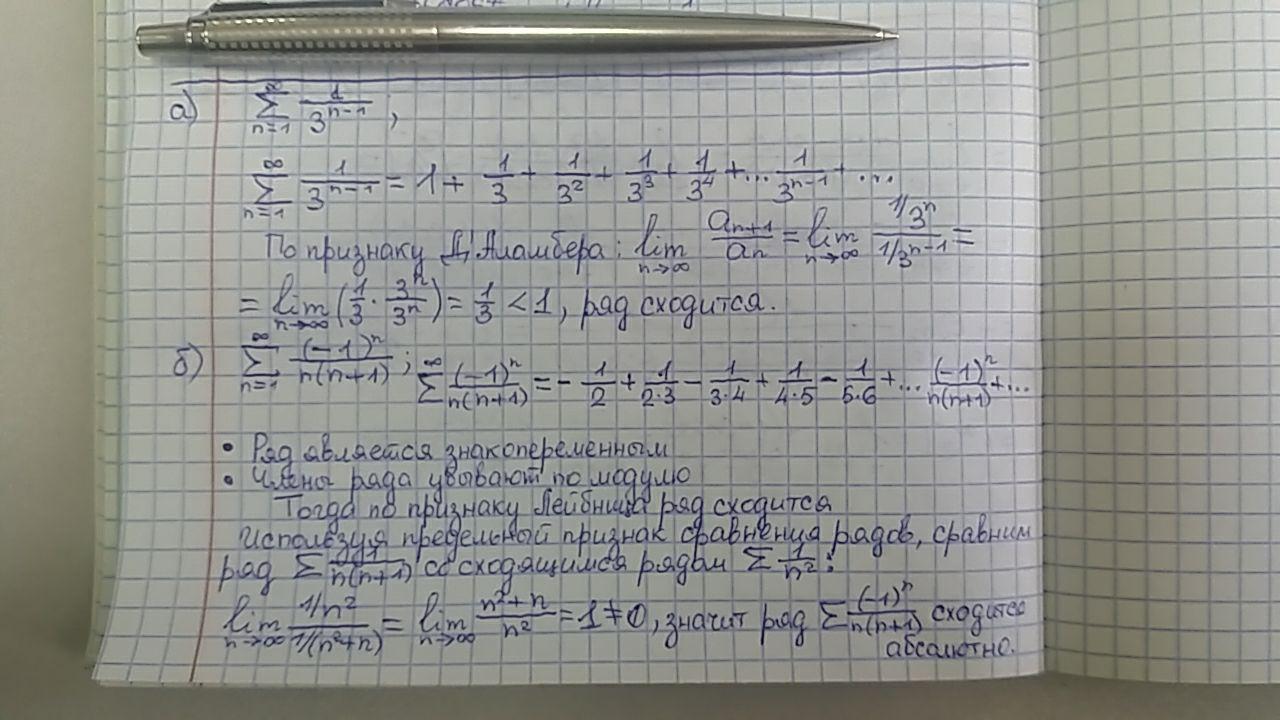 а) ∑_{n=1}^{∞} 1/3^{n-1} ;
∑_{n=1}^{∞} 1/3^{n-1} = 1 + 1/3 + 1/3² + 1/3³ + 1/3⁴ + ... 1/3^{n-1} + ...
По признаку Д'Аламбера: lim_{n→∞} a_{n+1}/a_n = lim_{n→∞} (1/3^n)/(1/3^{n-1}) =
= lim_{n→∞} (1/3 · 3^n/3^n) = 1/3 < 1, ряд сходится.
б) ∑_{n=1}^{∞} (-1)^n/n(n+1) ; ∑_{n=1}^{∞} (-1)^n/n(n+1) = - 1/2 + 1/2·3 - 1/3·4 + 1/4·5 - 1/5·6 + ... (-1)^n/n(n+1) + ...
• Ряд является знакопеременным
• Члены ряда убывают по модулю
Тогда по признаку Лейбница ряд сходится
Используя предельный признак сравнения рядов, сравним
ряд ∑ 1/n(n+1) со сходящимся рядом ∑ 1/n² :
lim_{n→∞} (1/n²)/(1/(n²+n)) = lim_{n→∞} (n²+n)/n² = 1 ≠ 0, значит ряд ∑ (-1)^n/n(n+1) сходится
абсолютно.